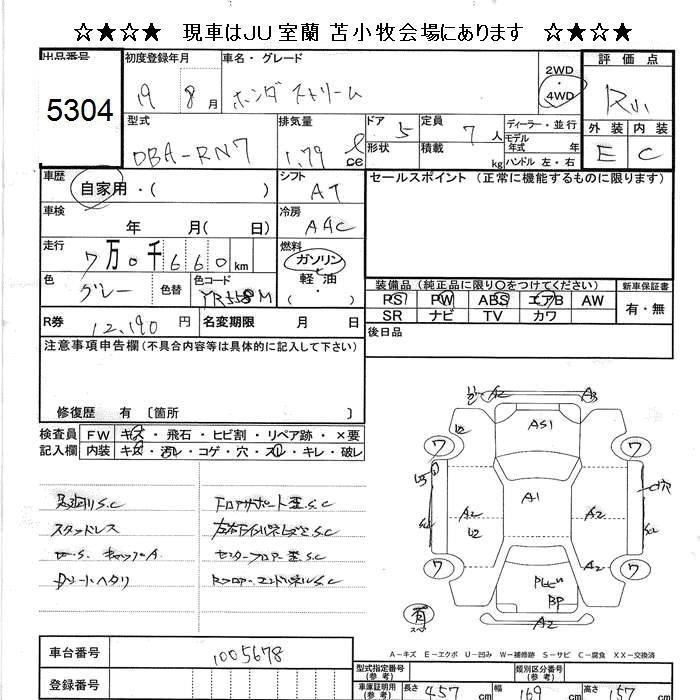 ☆★☆★ 現車はJU室蘭 苫小牧会場にあります ☆★☆★
出品番号 初度登録年月 車名・グレード 2WD・4WD 評価点
5304 19 8月 ホンダ ストリーム
型式 排気量 ドア 定員 ディーラー・並行 外装 内装
DBA-RN7 1.79 ℓ cc 5 7人 モデル年式 年 E C
形状 積載 kg ハンドル 左・右
車歴 シフト セールスポイント (正常に機能するものに限ります)
自家用・( ) AT
車検 冷房
年 月( 日) AAC
走行 燃料
7万0千660km ガソリン・軽・油
色 色替 色コード 装備品 (純正品に限り○をつけてください) 新車保証書
グレー PS PW ABS エアB AW 有・無
SR ナビ TV カワ
R券 12,190円 名変期限 月 日 後日品
注意事項申告欄 (不具合内容等は具体的に記入して下さい)
修復歴 有 〔箇所 〕
検査員 FW キズ・飛石・ヒビ割・リペア跡・×要
記入欄 内装 キズ・汚レ・コゲ・穴・スレ・キレ・破レ
足廻りS.C フロアサポート歪S.C
スタッドレス
センターフロアー歪S.C
Dシートヘタリ
A1
A2
ワ
有
A-キズ E-エクボ U-凹み W-補修跡 S-サビ C-腐食 XX-交換済
車台番号 1005678
登録番号
型式指定番号(参考) 類別区分番号(参考)
車庫証明用(参考) 長さ 457cm 幅 169cm 高さ 157cm